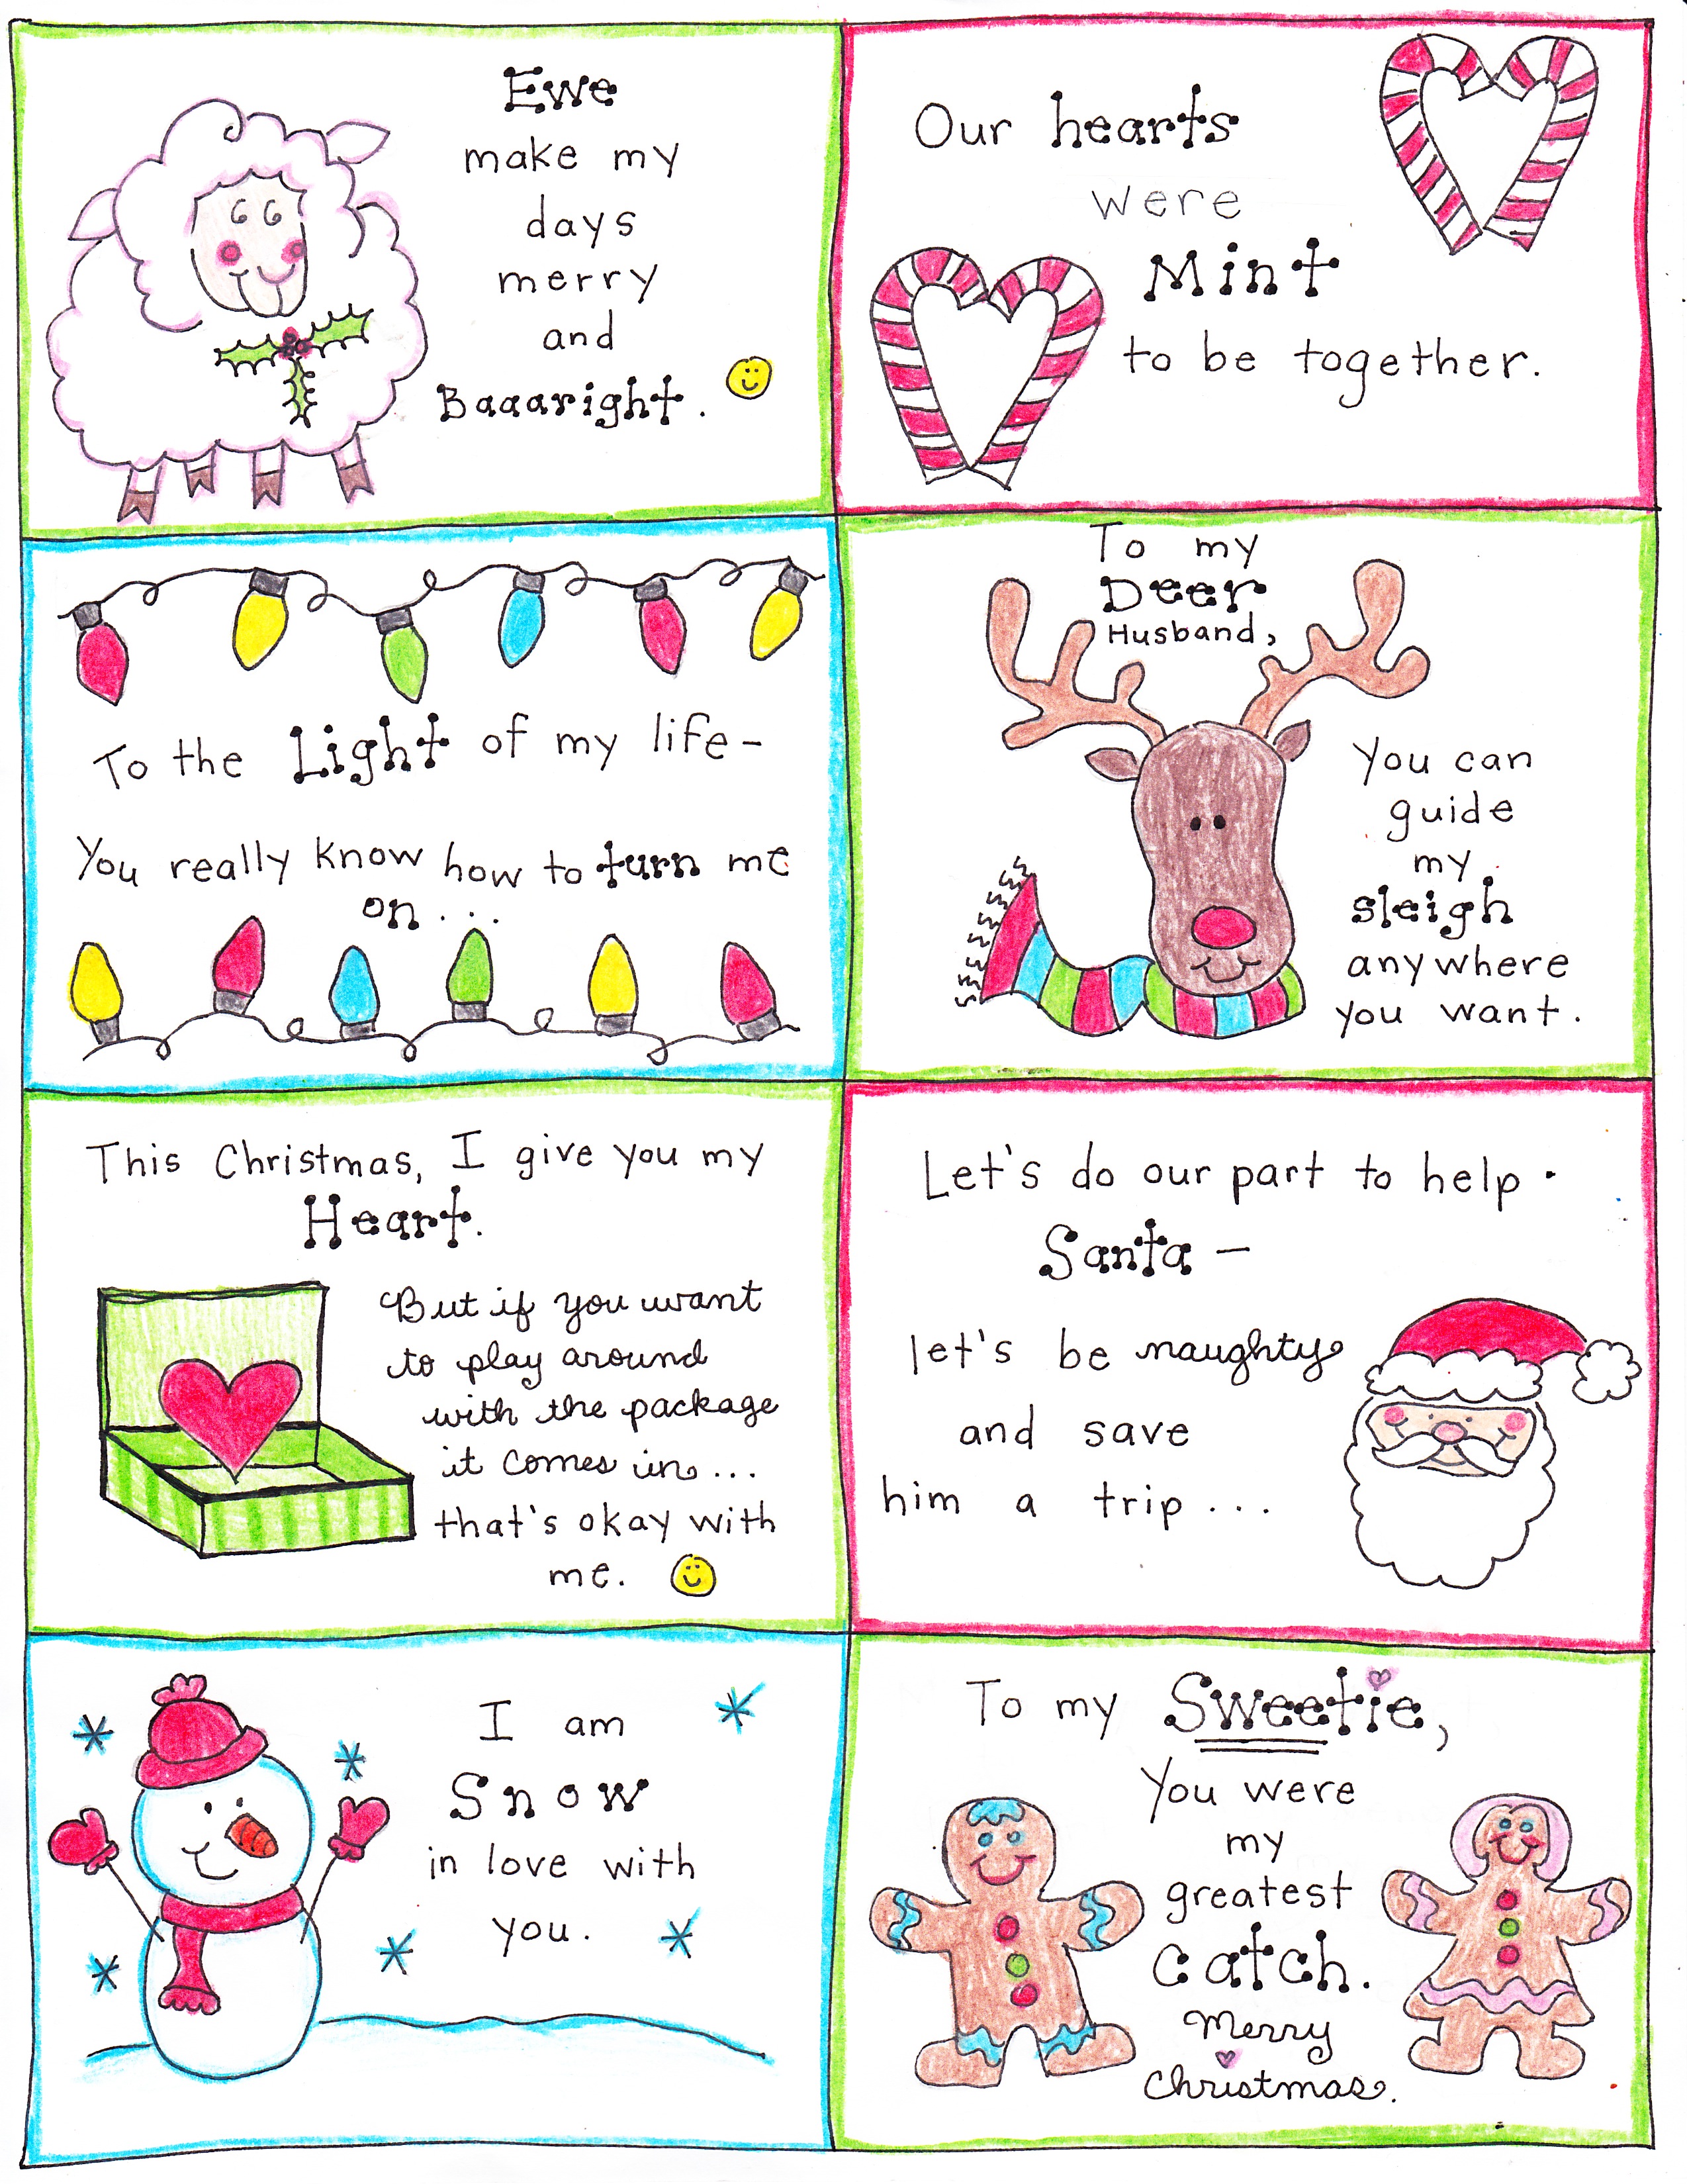 Ewe
make my
days
merry
and
Baaaright.
Our hearts
were
Mint
to be together.
To the Light of my life-
You really know how to turn me
on...
To my
Deer
Husband,
You can
guide
my
sleigh
anywhere
you want.
This Christmas, I give you my
Heart.
But if you want
to play around
with the package
it comes in...
that's okay with
me.
Let's do our part to help
Santa -
let's be naughty
and save
him a trip...
I am
Snow
in love with
you.
To my Sweetie,
You were
my
greatest
catch.
Merry
Christmas.